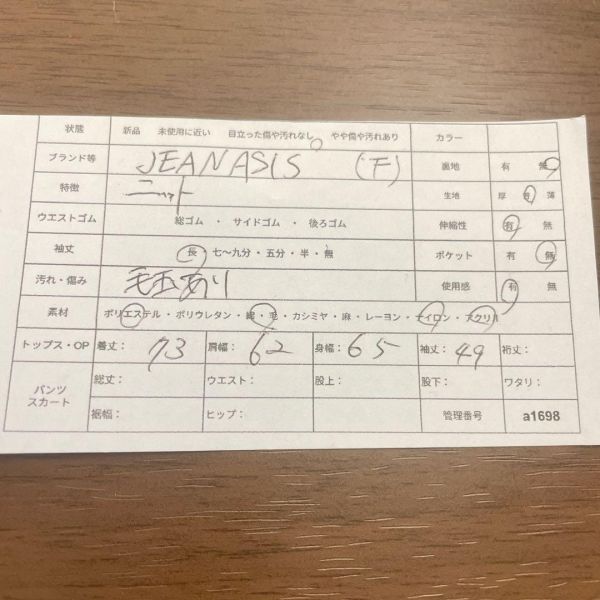 状態 新品 未使用に近い 目立った傷や汚れなし やや傷や汚れあり カラー
ブランド等 JEANASIS (F) 裏地 有 無
特徴 ニット 生地 厚 普 薄
ウエストゴム 総ゴム ・ サイドゴム ・ 後ろゴム 伸縮性 有 無
袖丈 長 七〜九分・五分・半・無 ポケット 有 無
汚れ・傷み 毛玉あり 使用感 有 無
素材 ポリエステル・ポリウレタン・綿・毛・カシミヤ・麻・レーヨン・ナイロン・アクリル
トップス・OP 着丈: 73 肩幅: 62 身幅: 65 袖丈: 49 裄丈:
パンツ スカート 総丈: ウエスト: 股上: 股下: ワタリ:
裾幅: ヒップ: 管理番号 a1698